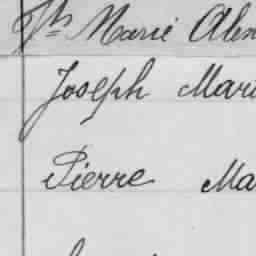 Jph Marie Alex
Joseph Mari
Pierre Ma